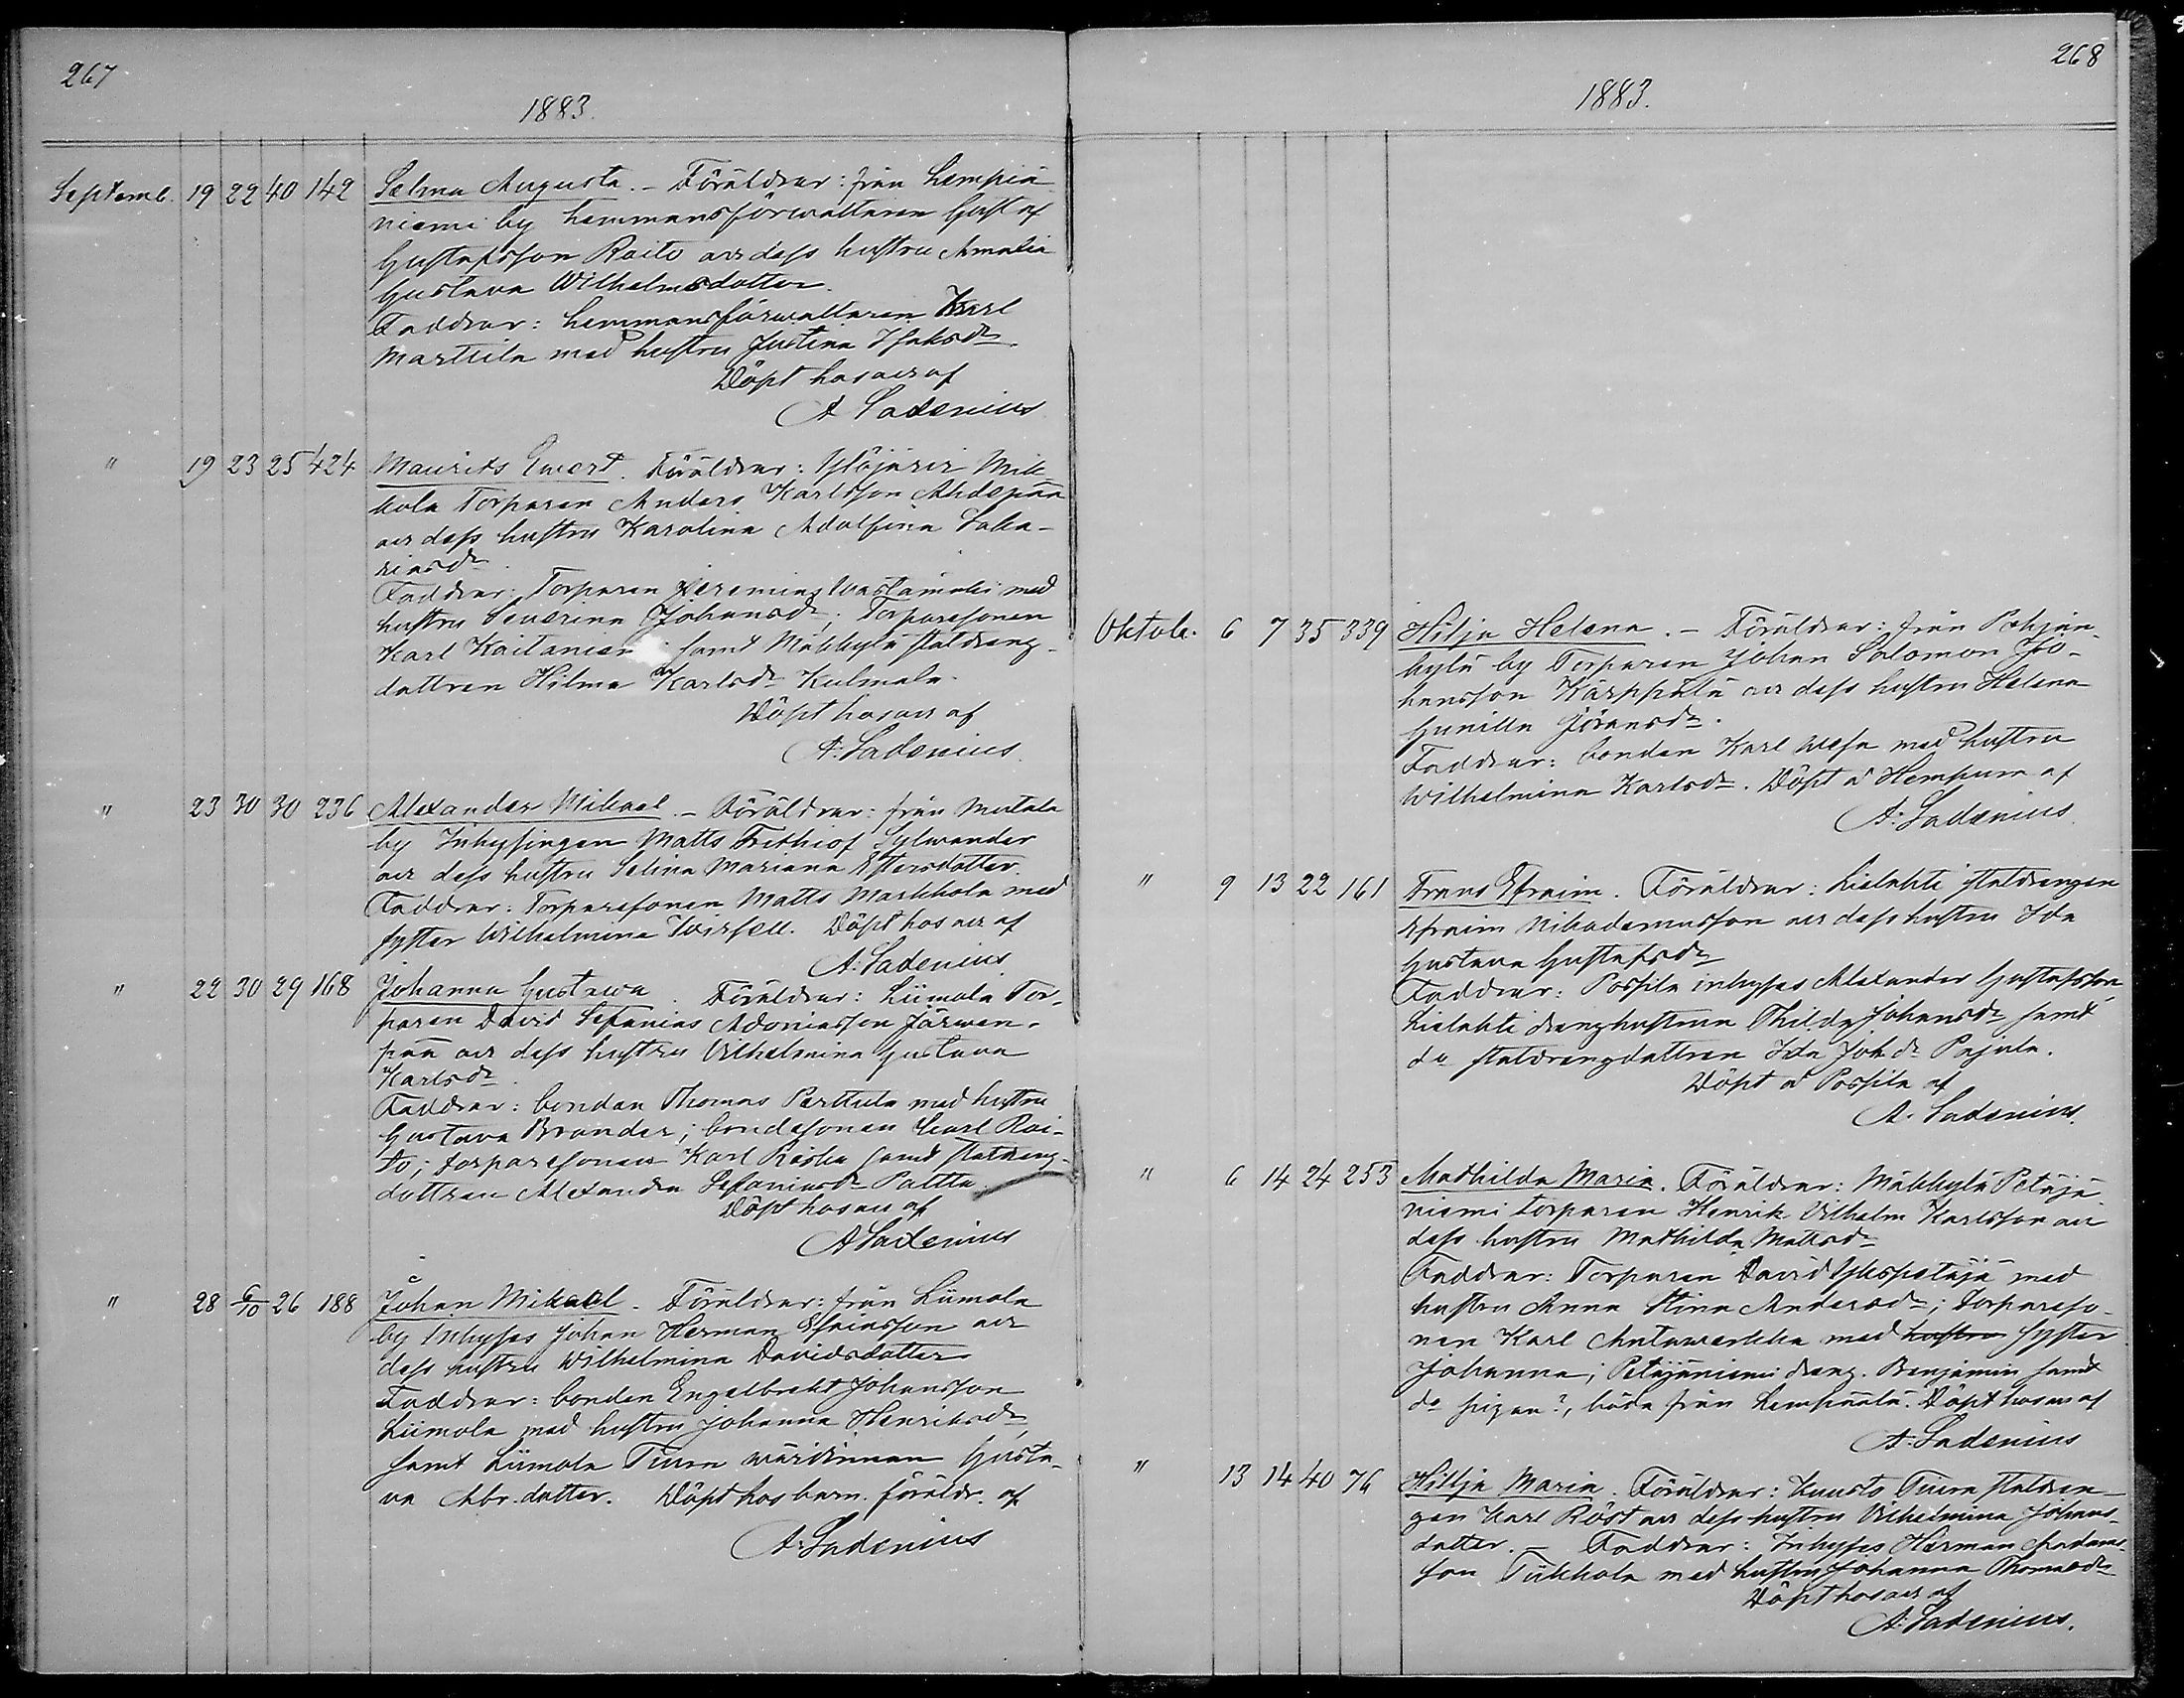 267
1883.
Septemb. 19 22 40 142 Selma Augusta. – Föräldrar: från Lempiä-
niemi by hemmansförvaltaren Gustaf
Gustafsson Raito och dess hustru Amalia
Gustava Wilhelmsdotter.
Faddrar: hemmansförvaltaren Karl
Marttila med hustru Justina Isaksdr
Döpt hos af
A Ladenius
" 19 23 25 424 Maurits Evert. Föräldrar: Ylöjärvi Mik-
kola Torparen Anders Karlsson Ahdepää
och dess hustru Karolina Adolfina Saka-
riasdr.
Faddrar: Torparen Jeremias med
hustru Severina Johansdr; Torparesonen
Karl Kaitanien samt Mäkkylä statdreng-
dottren Hilma Karlsdr Kulmala.
Döpt hos af
A. Ladenius.
" 23 30 30 236 Alexander Mikael. – Föräldrar: från Mutala
by Inhysingen Matts Frithiof Sylvander
och dess hustru Selina Mariana Estersdotter.
Faddrar: Torparesonen Matts Markkola med
syster Wilhelmina. Döpt hos af
A. Ladenius
" 22 30 29 168 Johanna Gustava. Föräldrar: Liimola Tor-
paren David Sefanias Adoniasson Järven-
pää och dess hustru Vilhelmina Gustava
Karlsdr.
Faddrar: bonden Thomas Perttula med hustru
Gustava Brander; bondesonen Karl Rai-
to; torparesonen Karl Riska samt statdreng-
dottren Alexandra Sefaniasdr Paltta.
Döpt hos af
A Ladenius
" 28 6/10 26 188 Johan Mikael. Föräldrar: från Liimola
by Inhyses Johan Herman Efraimsson och
dess hustru Wilhelmina Davidsdotter
Faddrar: bonden Engelbrekt Johansson
Liimola med hustru Johanna Henriksdr,
samt Liimola Tiura värdinnan Gusta-
va Abr. dotter. Döpt hos barn. föräldr. af
A. Ladenius
268
1883.
Oktob. 6 7 35 339 Hilja Helena. – Föräldrar: från Pohjan-
kylä by Torparen Johan Salomon Jo-
hansson Käppälä och dess hustru Helena
Gunilla Göransdr.
Faddrar: bonden Karl Vesa med hustru
Wilhelmina Karlsdr. Döpt å Hempura af
A. Ladenius.
" 9 13 22 161 Frans Efraim. Föräldrar: Lielahti statdrengen
Efraim Nikodemusson och dess hustru Ida
Gustava Gustafsdr
Faddrar: Possila inhyses Alexander Gustafsson,
Lielahti drenghustrun Thilda Johansdr samt
do statdrengdottren Ida Joh.dr Pajula.
Döpt å Possila af
A. Ladenius.
" 6 14 24 253 Mathilda Maria. Föräldrar: Mäkkylä Petäjä-
niemi torparen Henrik Vilhelm Karlsson och
dess hustru Mathilda Mattsdr
Faddrar: Torparen David Ykspetäjä med
hustru Anna Stina Andersdr; torpareso-
nen Karl Antaverkka med hustru syster
Johanna; Petäjäniemi dreng. Benjamin samt
do pigan?, båda från Lempäälä. Döpt hos af
A. Ladenius
" 13 14 40 76 Hilja Maria. Föräldrar: Kuusto Tiura statdren-
gen Karl Röst och dess hustru Vilhelmina Johans-
dotter. – Faddrar: Inhyses Herman Adams-
son Tiikkola med hustru Johanna Thomasdr
Döpt hos af
A. Ladenius.